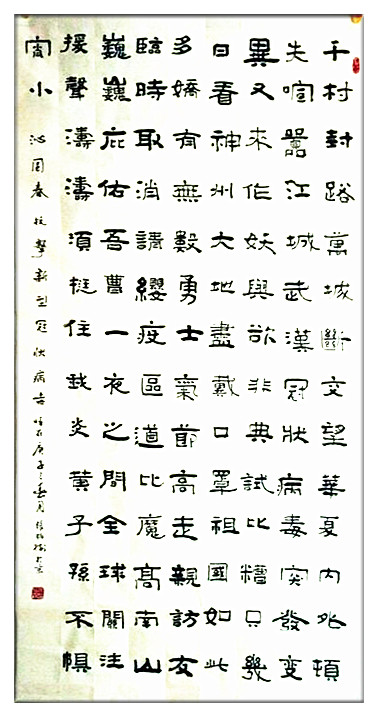 千村封路萬城斷交望華夏內外頓
失喧囂江城武漢冠狀病毒突發變
異又來作妖與欲非典試比糟只幾
日看神州大地盡戴口罩祖國如此
多嬌有無數勇士氣節高走親訪友
臨時取消請纓疫區道比魔高南山
巍巍庇佑吾曹一夜之間全球關注
援聲濤濤須挺住我炎黃子孫不懼
宵小 沁園春 抗擊新型冠狀病毒 時在庚子之春月